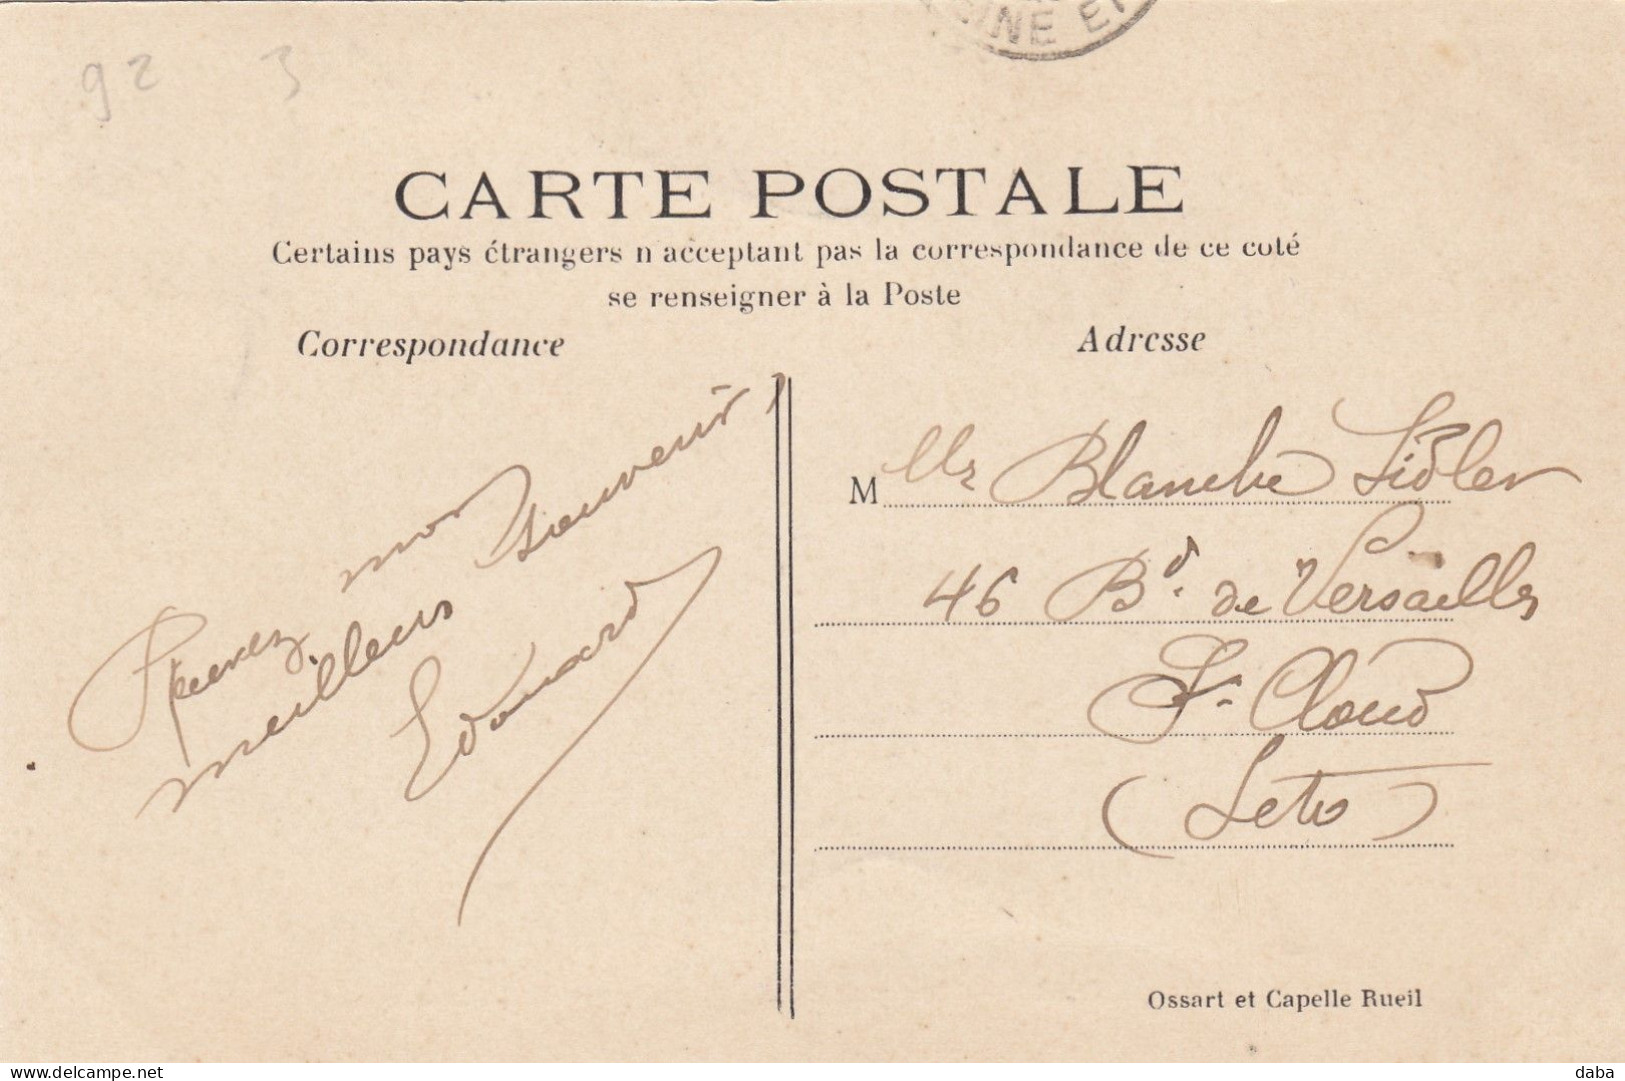 INE ET
92 3
CARTE POSTALE
Certains pays étrangers n acceptant pas la correspondance de ce coté
se renseigner à la Poste
Correspondance
Adresse
mos
meilleurs
Souvenir
Edouard
M lle Blanche Sidler
46 Bd. de Versailles
St. Cloud
(Seto)
Ossart et Capelle Rueil
delcampe.net
daba